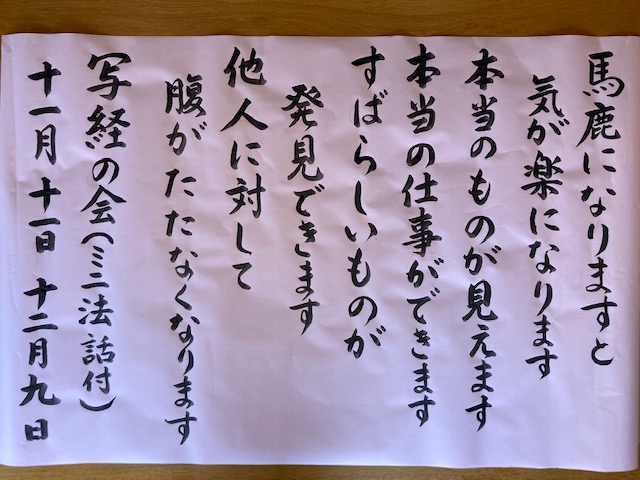 馬鹿になりますと
気が楽になります
本当のものが見えます
本当の仕事ができます
すばらしいものが
発見できます
他人に対して
腹がたたなくなります
写経の会(ミニ法話付)
十一月十一日 十二月九日